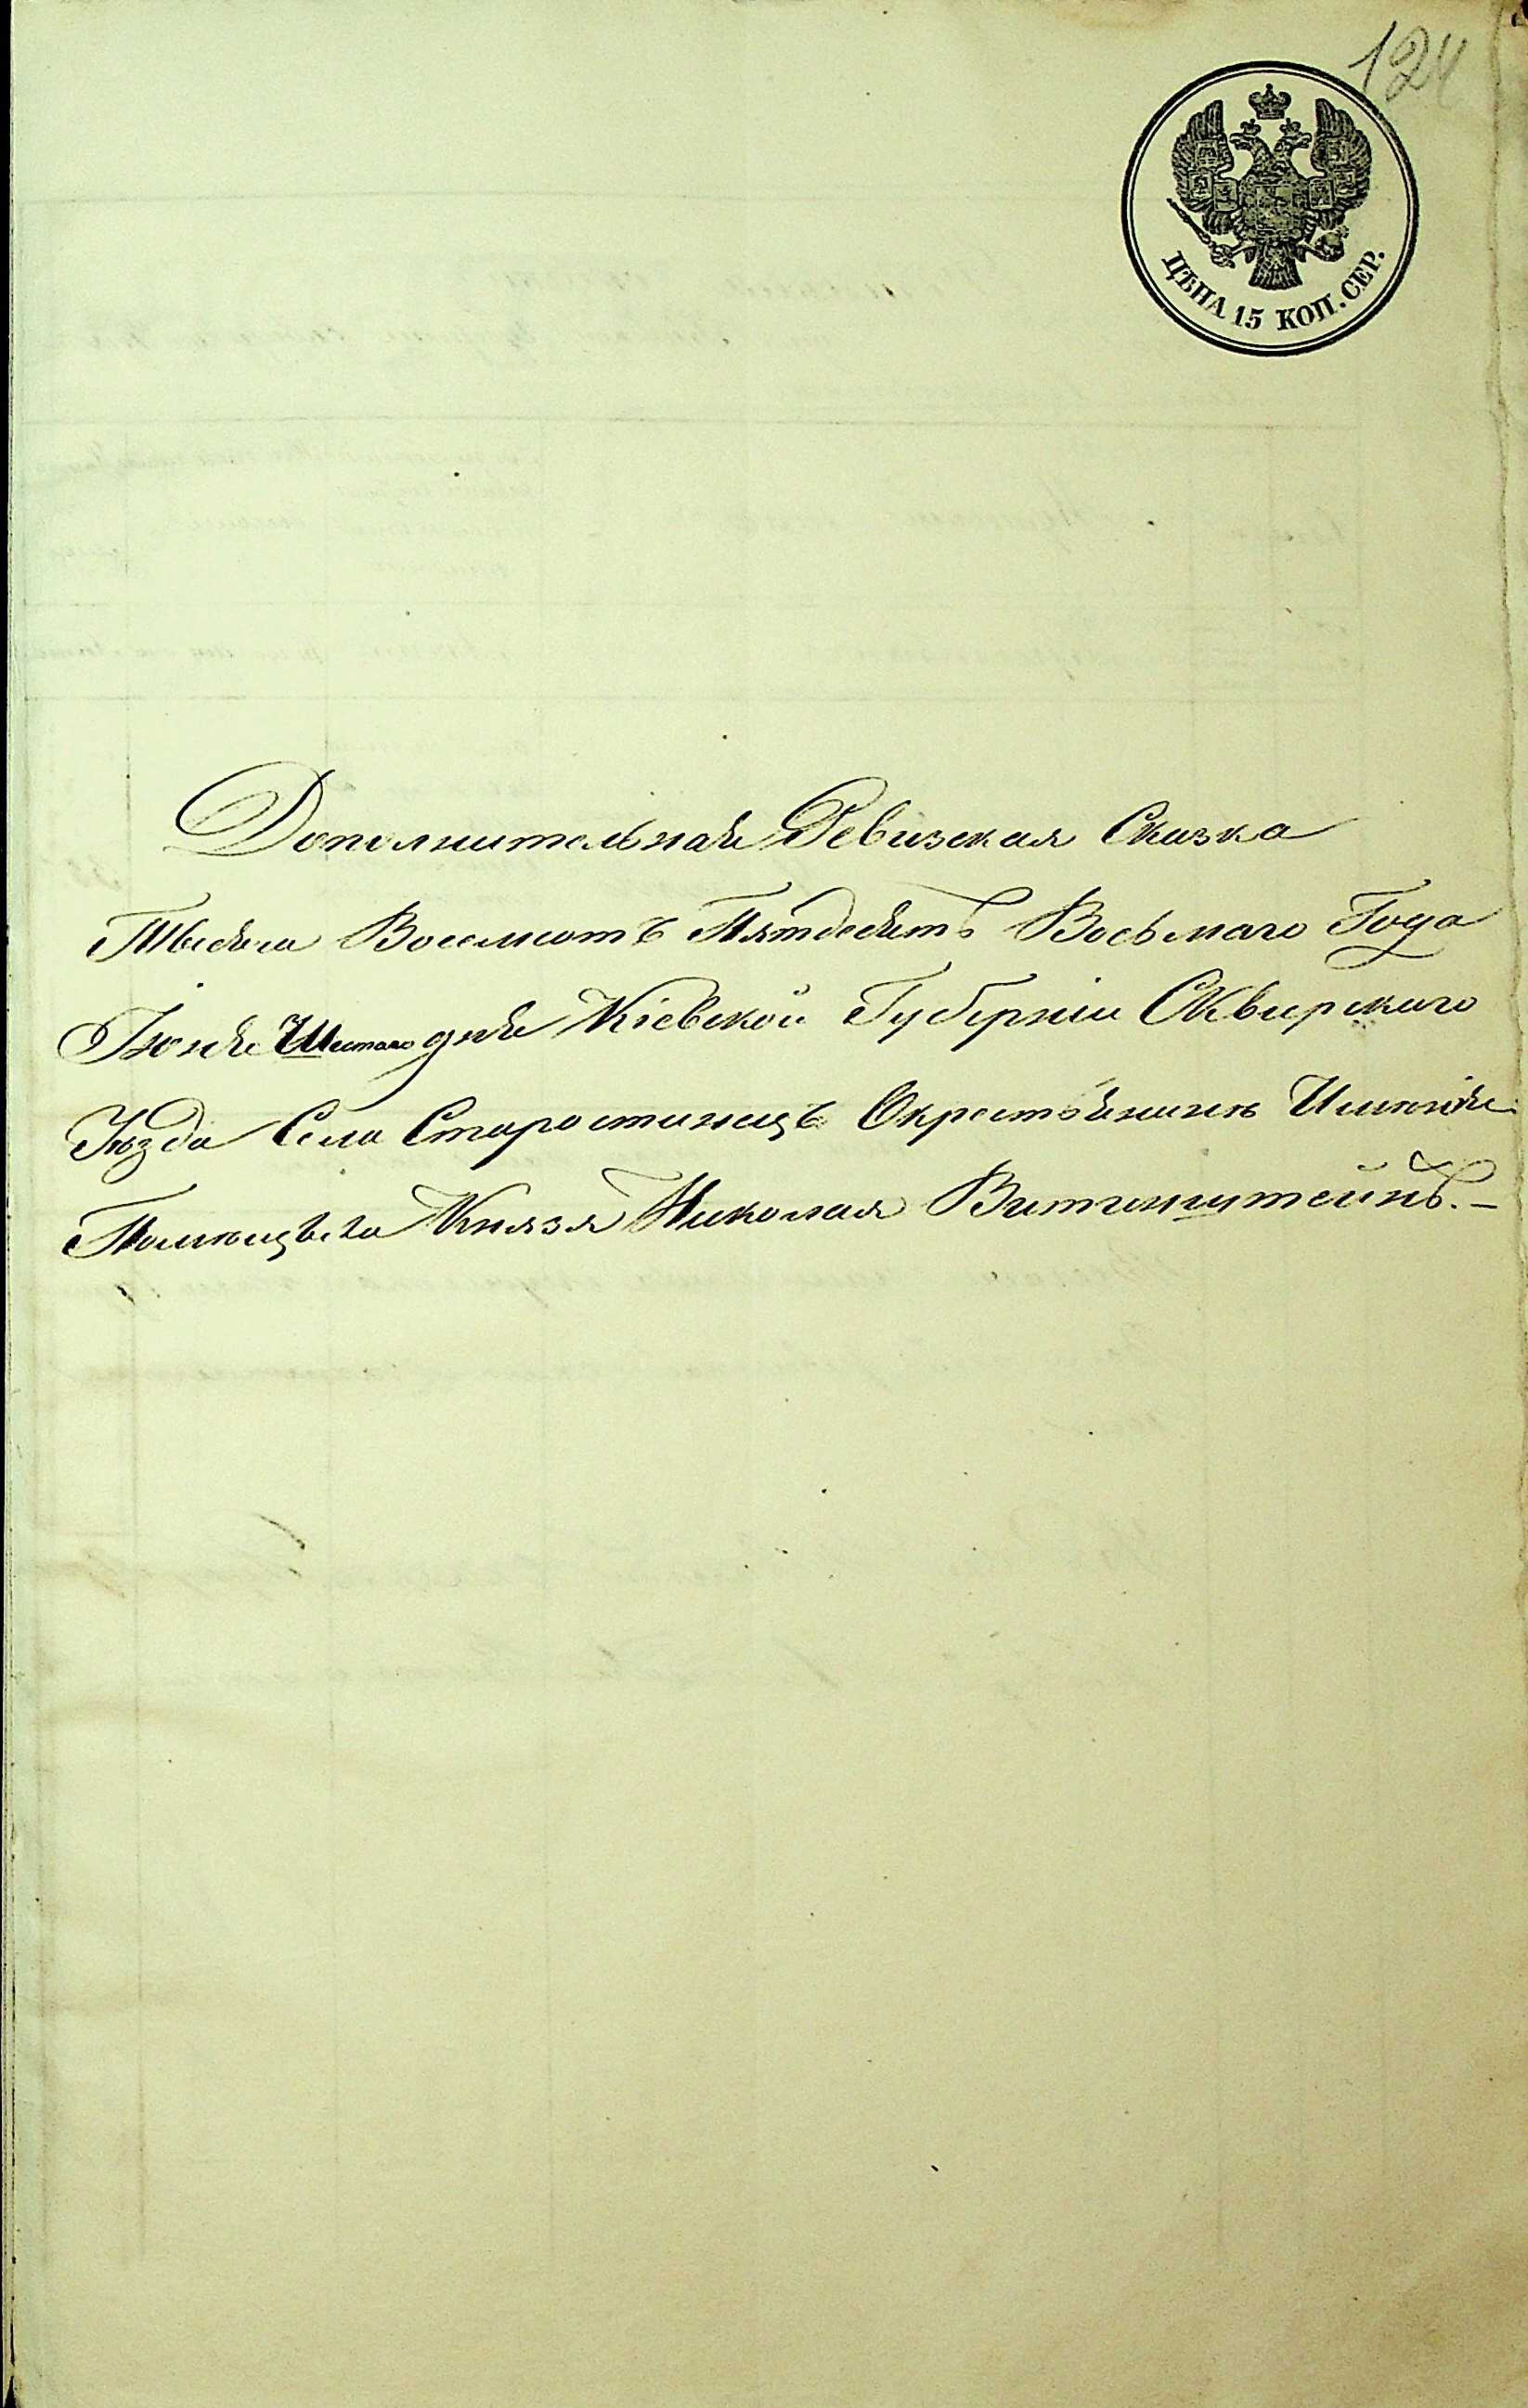 124
ЦѢНА 15 КОП. СЕР.
Дополнительная Ревизская Сказка
Тысяча Восемсотъ Пятдесятъ Восьмаго Года
Іюня Шестаго дня Кіевской Губерніи Сквирскаго
Уѣзда Села Старостинецъ Окрестьянинѣ Имѣнія
Помѣщика Князя Николая Витгинштейнъ.-